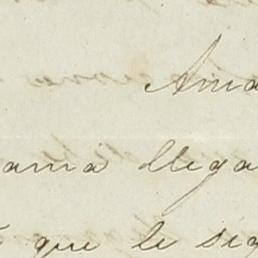 Ama
ama llega
que le sig